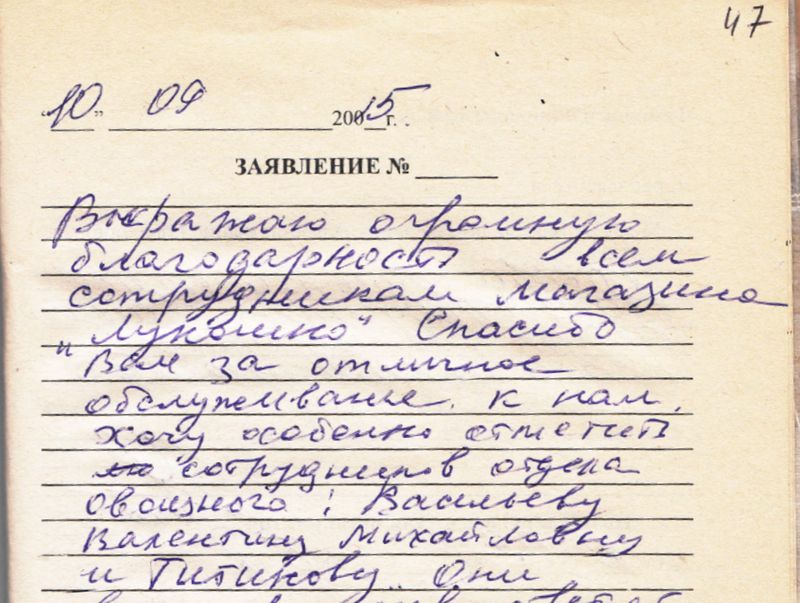 47
"10" 09 20015 г.
ЗАЯВЛЕНИЕ № 
Выражаю огромную
благодарность всем
сотрудникам магазина
"Лукошко" Спасибо
Вам за отличное
обслуживание. к нам,
хочу особенно отметить
сотрудников отдела
овощного: Васильеву
Валентину Михайловну
и Титикову. Они